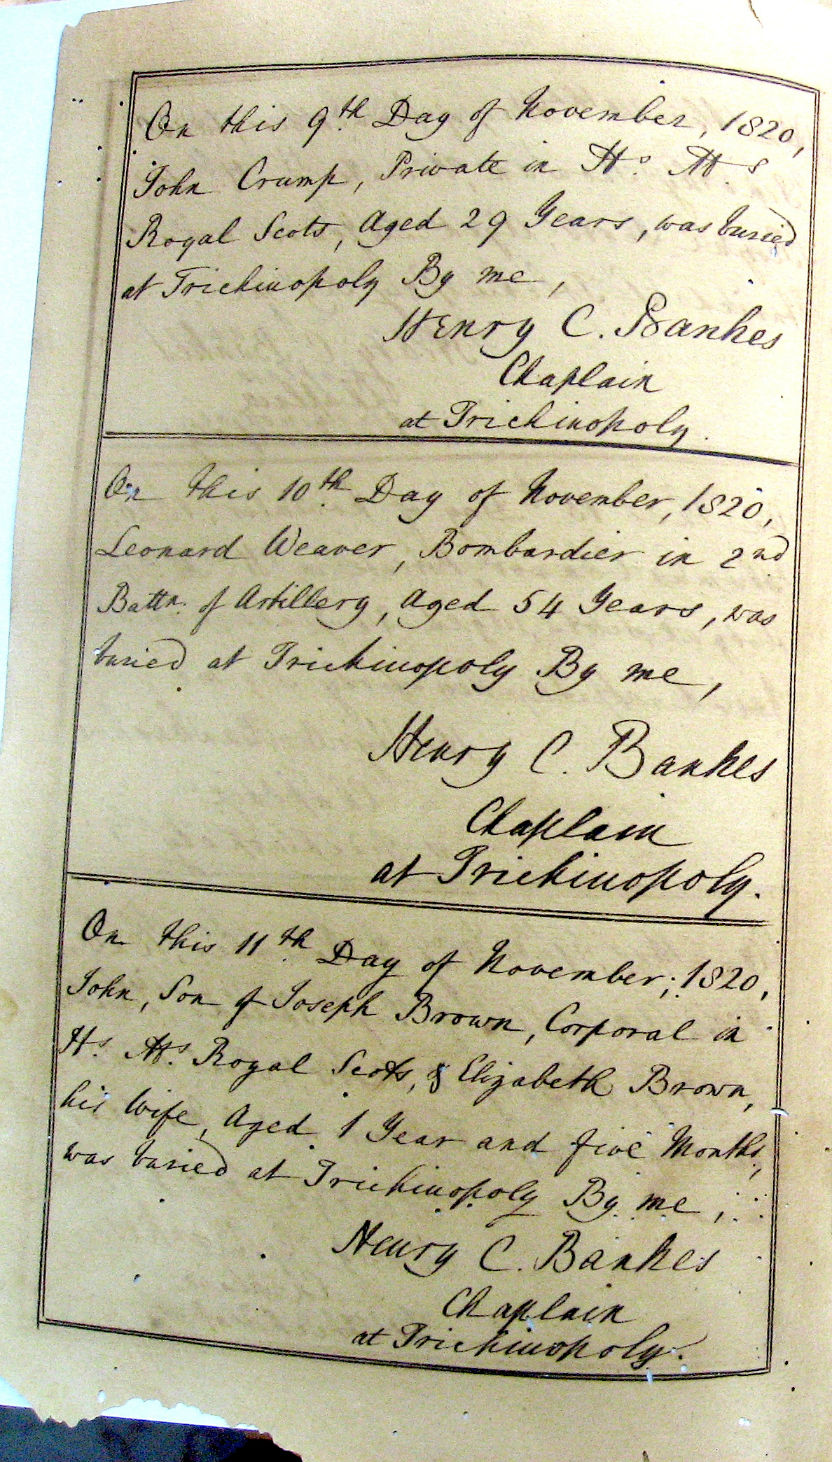 On this 9th Day of November, 1820,
John Crump, Private in H.s M.s
Royal Scots, Aged 29 Years, was buried
at Trichinopoly By me,
Henry C. Bankes
Chaplain
at Trichinopoly.
On this 10th Day of November, 1820,
Leonard Weaver, Bombardier in 2nd
Battn. of Artillery, Aged 54 Years, was
buried at Trichinopoly By me,
Henry C. Bankes
Chaplain
at Trichinopoly.
On this 11th Day of November, 1820,
John, Son of Joseph Brown, Corporal in
H.s M.s Royal Scots, & Elizabeth Brown,
his Wife, Aged 1 Year and five Months,
was buried at Trichinopoly By me,
Henry C. Bankes
Chaplain
at Trichinopoly.